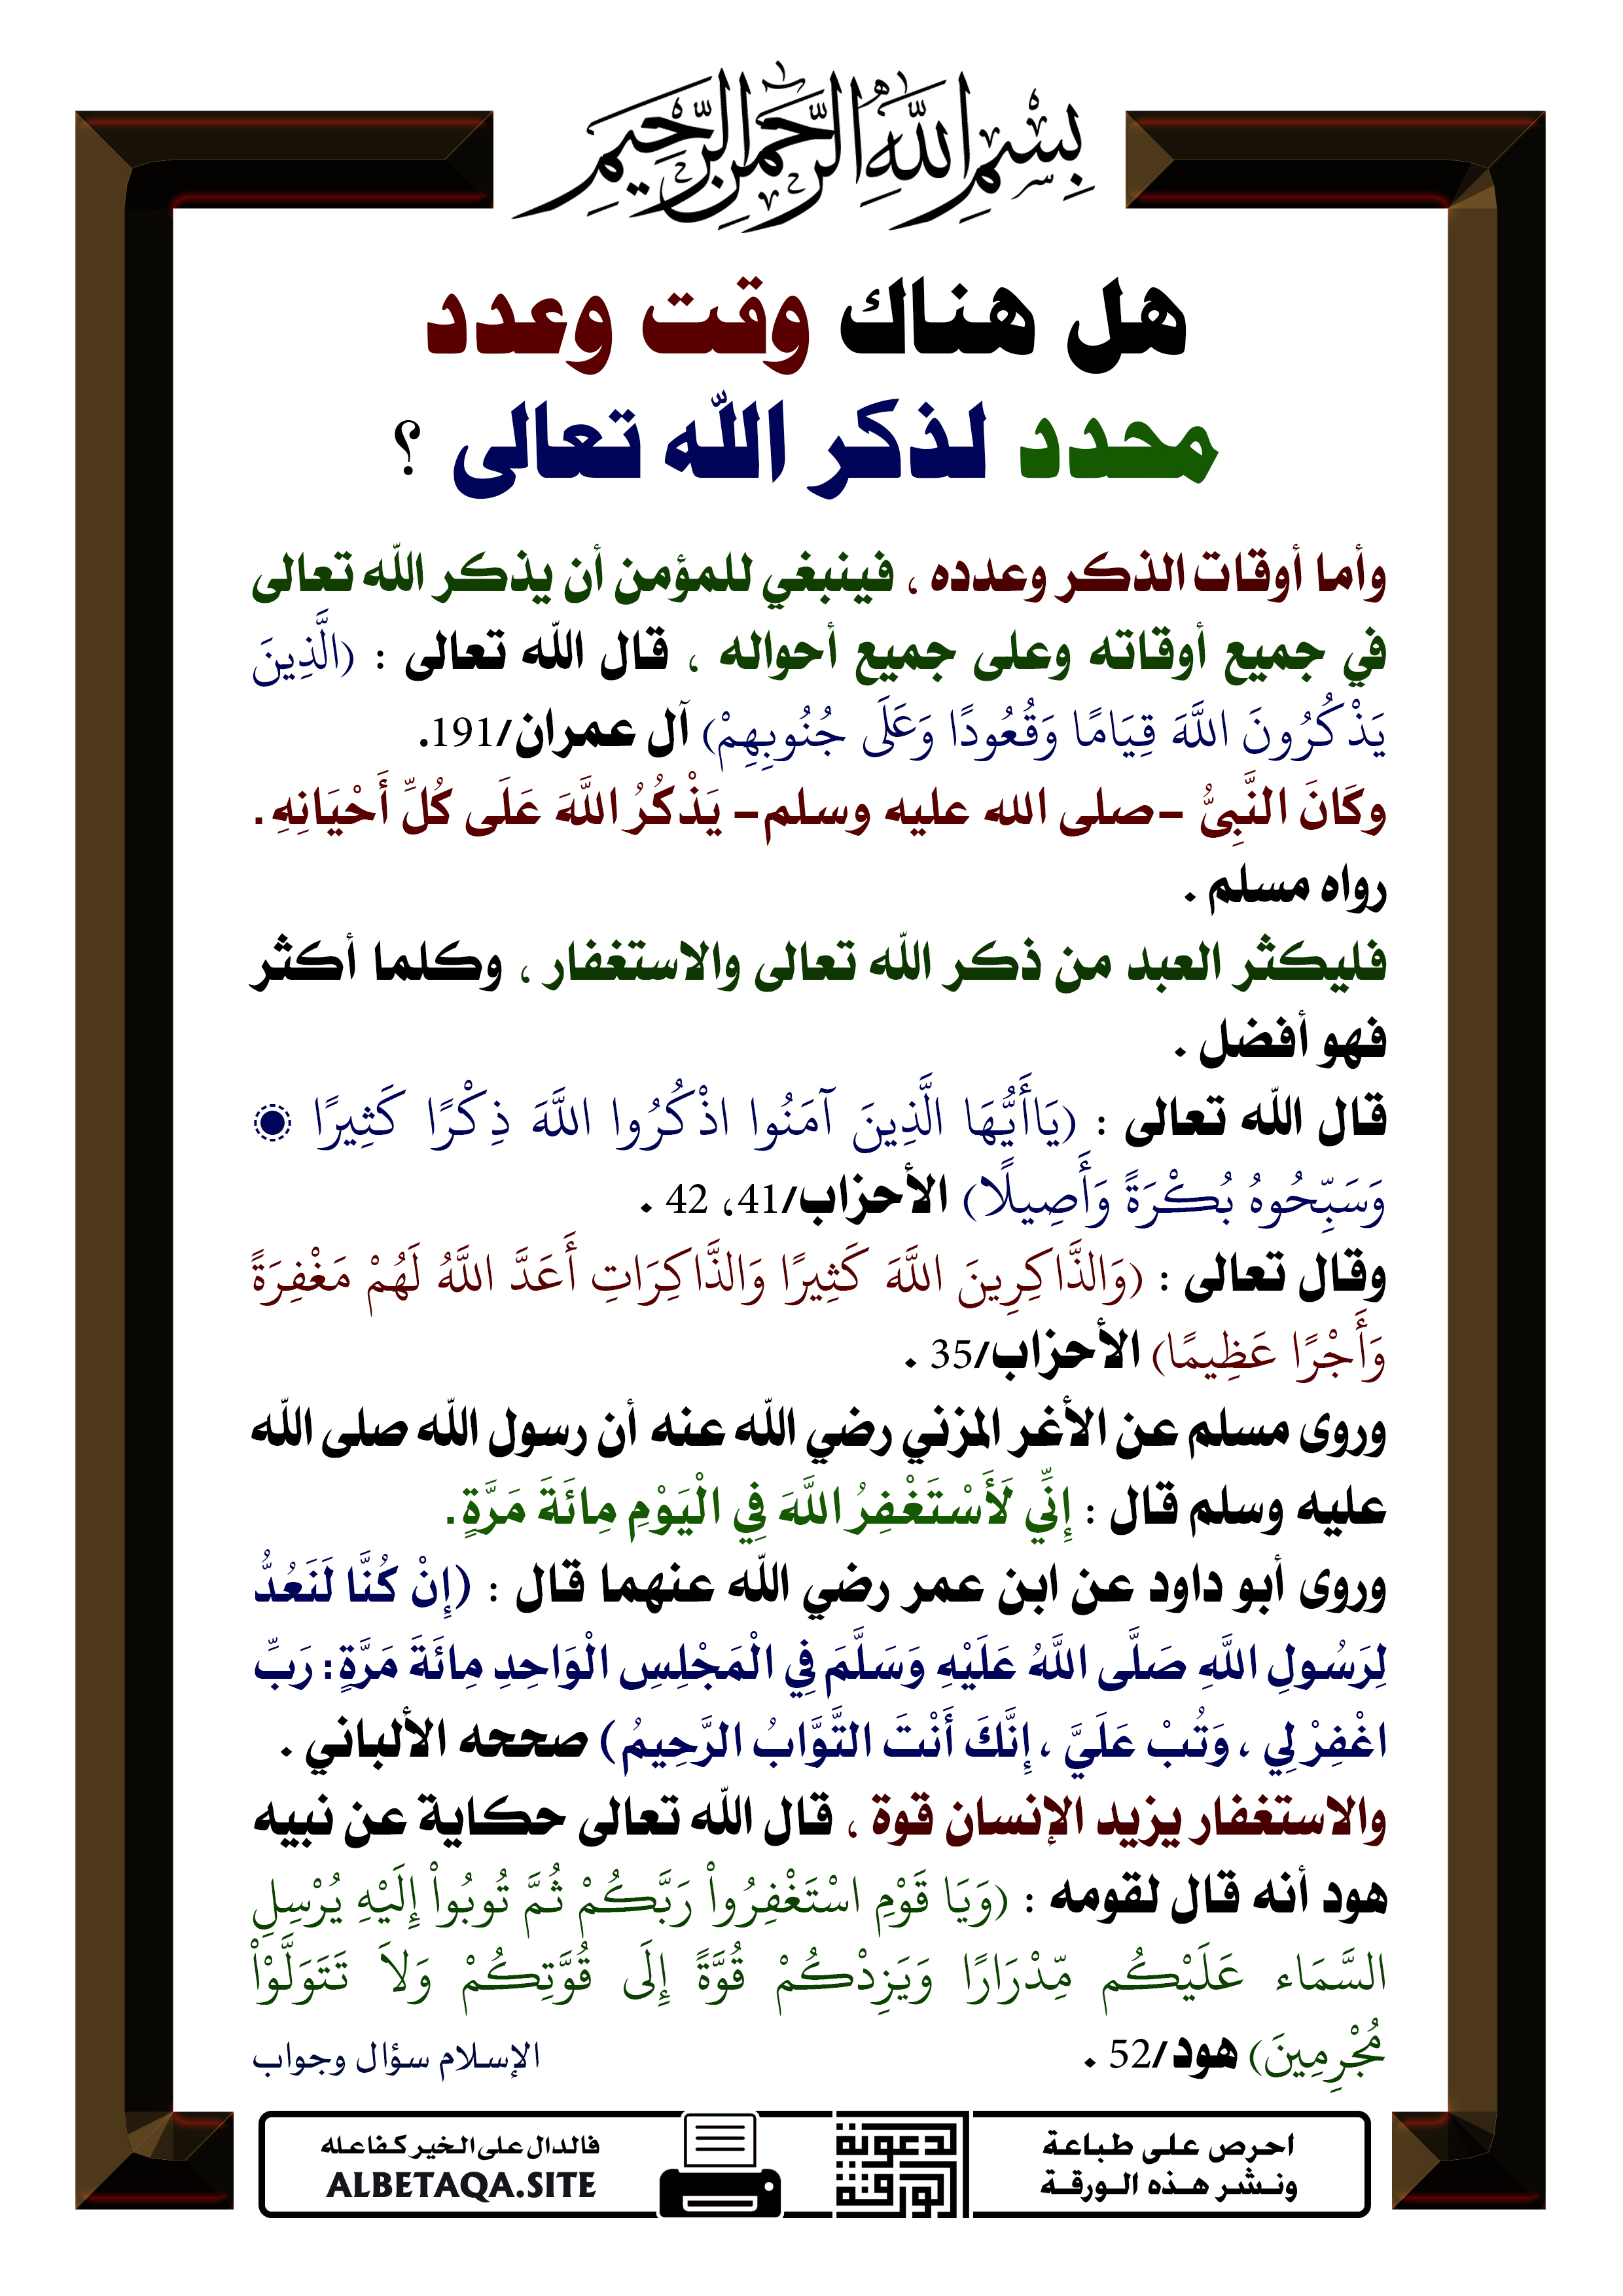 بِسْمِ اللَّهِ الرَّحْمَٰنِ الرَّحِيمِ
هل هناك وقت وعدد
محدد لذكر الله تعالى ؟
وأما أوقات الذكر وعدده ، فينبغي للمؤمن أن يذكر الله تعالى
في جميع أوقاته وعلى جميع أحواله ، قال الله تعالى : (الَّذِينَ
يَذْكُرُونَ اللَّهَ قِيَامًا وَقُعُودًا وَعَلَى جُنُوبِهِمْ) آل عمران/191.
وكَانَ النَّبِىُّ -صلى الله عليه وسلم- يَذْكُرُ اللَّهَ عَلَى كُلِّ أَحْيَانِهِ .
رواه مسلم .
فليكثر العبد من ذكر الله تعالى والاستغفار ، وكلما أكثر
فهو أفضل .
قال الله تعالى : (يَاأَيُّهَا الَّذِينَ آمَنُوا اذْكُرُوا اللَّهَ ذِكْرًا كَثِيرًا ۝
وَسَبِّحُوهُ بُكْرَةً وَأَصِيلًا) الأحزاب/41، 42 .
وقال تعالى : (وَالذَّاكِرِينَ اللَّهَ كَثِيرًا وَالذَّاكِرَاتِ أَعَدَّ اللَّهُ لَهُمْ مَغْفِرَةً
وَأَجْرًا عَظِيمًا) الأحزاب/35 .
وروى مسلم عن الأغر المزني رضي الله عنه أن رسول الله صلى الله
عليه وسلم قال : إِنِّي لَأَسْتَغْفِرُ اللَّهَ فِي الْيَوْمِ مِائَةَ مَرَّةٍ .
وروى أبو داود عن ابن عمر رضي الله عنهما قال : (إِنْ كُنَّا لَنَعُدُّ
لِرَسُولِ اللَّهِ صَلَّى اللَّهُ عَلَيْهِ وَسَلَّمَ فِي الْمَجْلِسِ الْوَاحِدِ مِائَةَ مَرَّةٍ : رَبِّ
اغْفِرْ لِي ، وَتُبْ عَلَيَّ ، إِنَّكَ أَنْتَ التَّوَّابُ الرَّحِيمُ) صححه الألباني .
والاستغفار يزيد الإنسان قوة ، قال الله تعالى حكاية عن نبيه
هود أنه قال لقومه : (وَيَا قَوْمِ اسْتَغْفِرُواْ رَبَّكُمْ ثُمَّ تُوبُواْ إِلَيْهِ يُرْسِلِ
السَّمَاء عَلَيْكُم مِّدْرَارًا وَيَزِدْكُمْ قُوَّةً إِلَى قُوَّتِكُمْ وَلاَ تَتَوَلَّوْاْ
مُجْرِمِينَ) هود/52 .
الإسلام سؤال وجواب
احرص على طباعة
ونشر هذه الورقة
الورقة
الدعوية
فالدال على الخير كفاعله
ALBETAQA.SITE